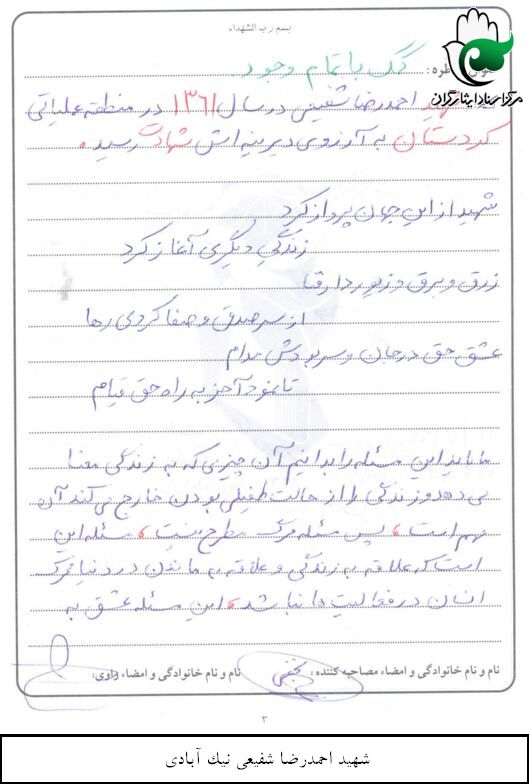 بسم رب الشهداء
خاطره: کمک با تمام وجود
مرکز اسناد ایثارگران
شهید احمدرضا شفیعی در سال ۱۳۶۱ در منطقه عملیاتی
کردستان به آرزوی دیرینه اش شهادت رسید.
شهید از این جهان پرواز کرد
زندگی دیگری آغاز کرد
زرق و برق و زیور دار فنا
از سر صدق و صفا کردی رها
عشق حق در جان و سر بودش مدام
تا نمود آخر به راه حق قیام
ما باید این مسئله را بدانیم آن چیزی که به زندگی معنا
می دهد و زندگی را از حالت طفیلی بودن خارج می کند آن
مهم است، پس مسئله مرگ مطرح نیست، مسئله این
است که علاقه به زندگی و علاقه به ماندن در دنیا مرگ
انسان در فعالیت ها نباشد، این مسئله عشق به
نام و نام خانوادگی و امضاء مصاحبه کننده:
نام و نام خانوادگی و امضاء راوی:
۳
شهید احمدرضا شفیعی نیک آبادی